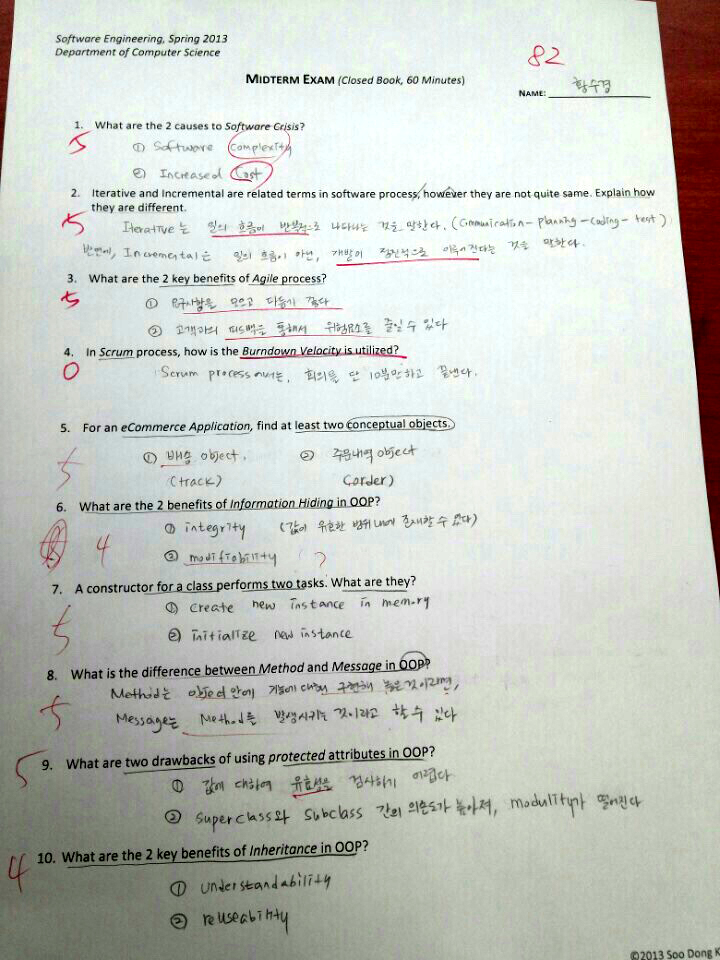 Software Engineering, Spring 2013
Department of Computer Science
82
MIDTERM EXAM (Closed Book, 60 Minutes)
NAME: 황수경
1. What are the 2 causes to Software Crisis?
5
① Software Complexity
② Increased Cost
2. Iterative and Incremental are related terms in software process, however they are not quite same. Explain how
they are different.
5
Iterative는 일의 흐름이 반복적으로 나타나는 것을 말한다. (Communication - planning - coding - test)
반면에, Incremental은 일의 흐름이 아닌, 개발이 점진적으로 이루어진다는 것을 말한다.
3. What are the 2 key benefits of Agile process?
5
① 요구사항을 모으고 다듬기 좋다
② 고객과의 피드백을 통해서 위험요소를 줄일 수 있다
4. In Scrum process, how is the Burndown Velocity is utilized?
0
Scrum process에서는, 회의를 단 10분만하고 끝낸다.
5. For an eCommerce Application, find at least two conceptual objects.
5
① 배송 object. ② 주문내역 object
(track) (order)
6. What are the 2 benefits of Information Hiding in OOP?
4
① integrity (값이 유효한 범위 내에 존재할 수 있다)
② modifiability (?)
7. A constructor for a class performs two tasks. What are they?
5
① Create new instance in memory
② initialize new instance
8. What is the difference between Method and Message in OOP?
5
Method는 object 안에 기능에 대해 구현해 놓은 것이라면,
Message는 Method를 발생시키는 것이라고 할 수 있다
5
9. What are two drawbacks of using protected attributes in OOP?
① 값에 대하여 유효성을 검사하기 어렵다
② superclass와 Subclass 간의 의존도가 높아져, modulity가 떨어진다
4
10. What are the 2 key benefits of Inheritance in OOP?
① understandability
② reuseability
©2013 Soo Dong K